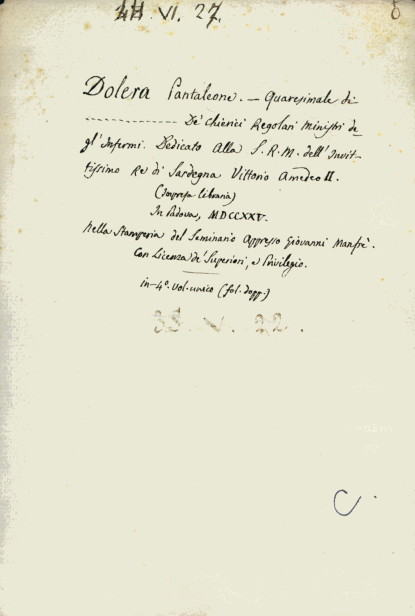 44 VI. 27.
Dolera Pantaleone. — Quaresimale di
------------- De' Chierici Regolari Ministri de
gl' Infermi. Dedicato Alla S. R. M. dell' Invit-
tissimo Re di Sardegna Vittorio Amedeo II.
(Impresa libraria)
In Padova, MDCCXXV.
Nella Stamperia del Seminario Appresso Giovanni Manfrè.
Con Licenza de' Superiori, e Privilegio.
in-4°. Vol. unico (fol. dopp.)
33 . V . 22 .
C .